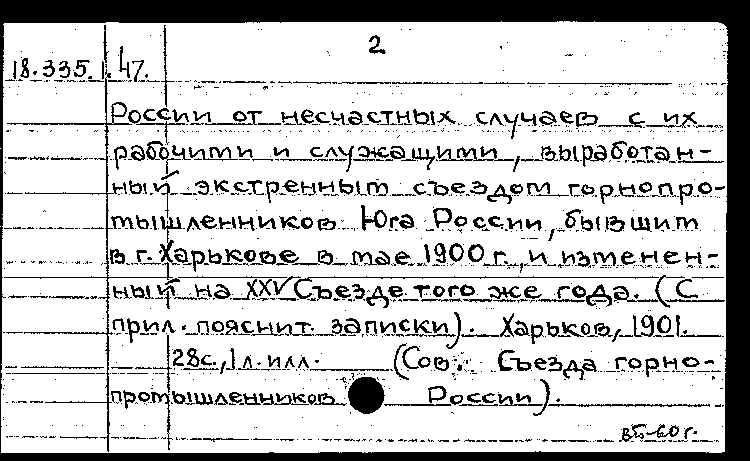 2
18.335.1.47.
России от несчастных случаев с их
рабочими и служащими, выработан-
ный экстренным съездом горнопро-
мышленников Юга России, бывшим
в г. Харькове в мае 1900 г., и изменен-
ный на XXV Съезде того же года. (С
прил. пояснит. записки). Харьков, 1901.
28с., 1 л. илл. (Сов. Съезда горно-
промышленников России).